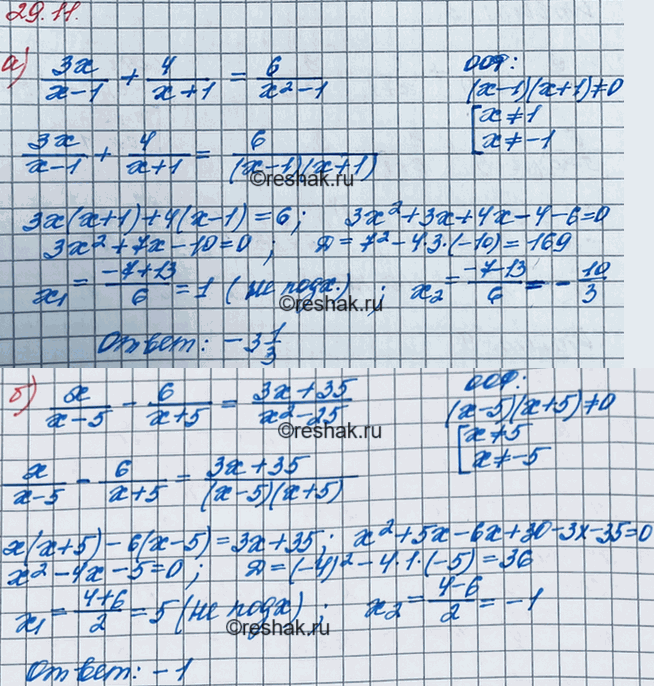 29.11.
а) 3x/(x-1) + 4/(x+1) = 6/(x²-1)
ООФ:
(x-1)(x+1)≠0
[x≠1
x≠-1
3x/(x-1) + 4/(x+1) = 6/((x-1)(x+1))
©reshak.ru
3x(x+1)+4(x-1)=6; 3x²+3x+4x-4-6=0
3x²+7x-10=0; D=7²-4·3·(-10)=169
x₁=(-7+13)/6=1 (не подх.); x₂=(-7-13)/6=-10/3
©reshak.ru
Ответ: -3 1/3
б) x/(x-5) - 6/(x+5) = (3x+35)/(x²-25)
ООФ:
(x-5)(x+5)≠0
[x≠5
x≠-5
©reshak.ru
x/(x-5) - 6/(x+5) = (3x+35)/((x-5)(x+5))
x(x+5)-6(x-5)=3x+35; x²+5x-6x+30-3x-35=0
x²-4x-5=0; D=(-4)²-4·1·(-5)=36
x₁=(4+6)/2=5 (не подх); x₂=(4-6)/2=-1
©reshak.ru
Ответ: -1